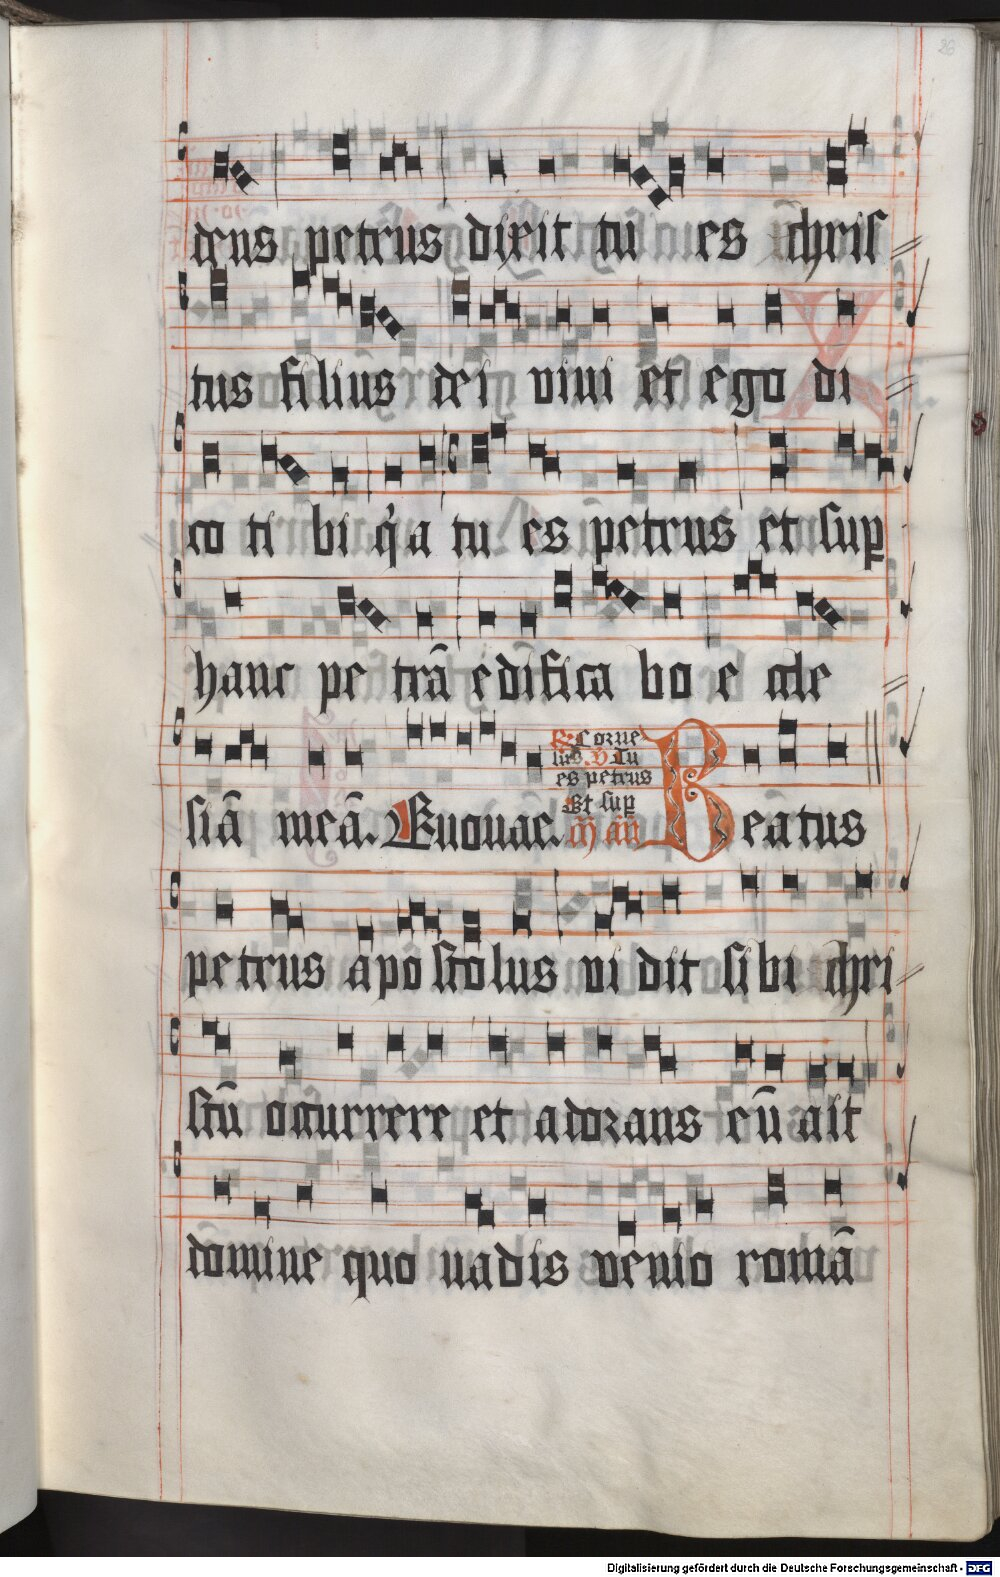 26
dens petrus dixit tu es chris
tus filius dei vivi et ego di
co ti bi q'a tu es petrus et sup
hanc pe trā edifica bo e ccle
siā meā. Euouae.
℞. Corne
lius. ℣. Tu
es petrus
Et sup
m̄ an̄
Beatus
petrus apostolus vi dit si bi chri
stū occurrere et adorans eū ait
domine quo uadis venio romā
Digitalisierung gefördert durch die Deutsche Forschungsgemeinschaft - DFG